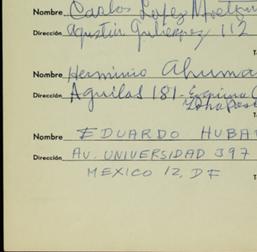 Nombre Carlos Lopez
Dirección Agustin Gutierrez 112
Nombre Herminio Ahuma
Dirección Aguilas 181 - Esquina
Nombre EDUARDO HUBA
Dirección AV. UNIVERSIDAD 397
MEXICO 12, DF